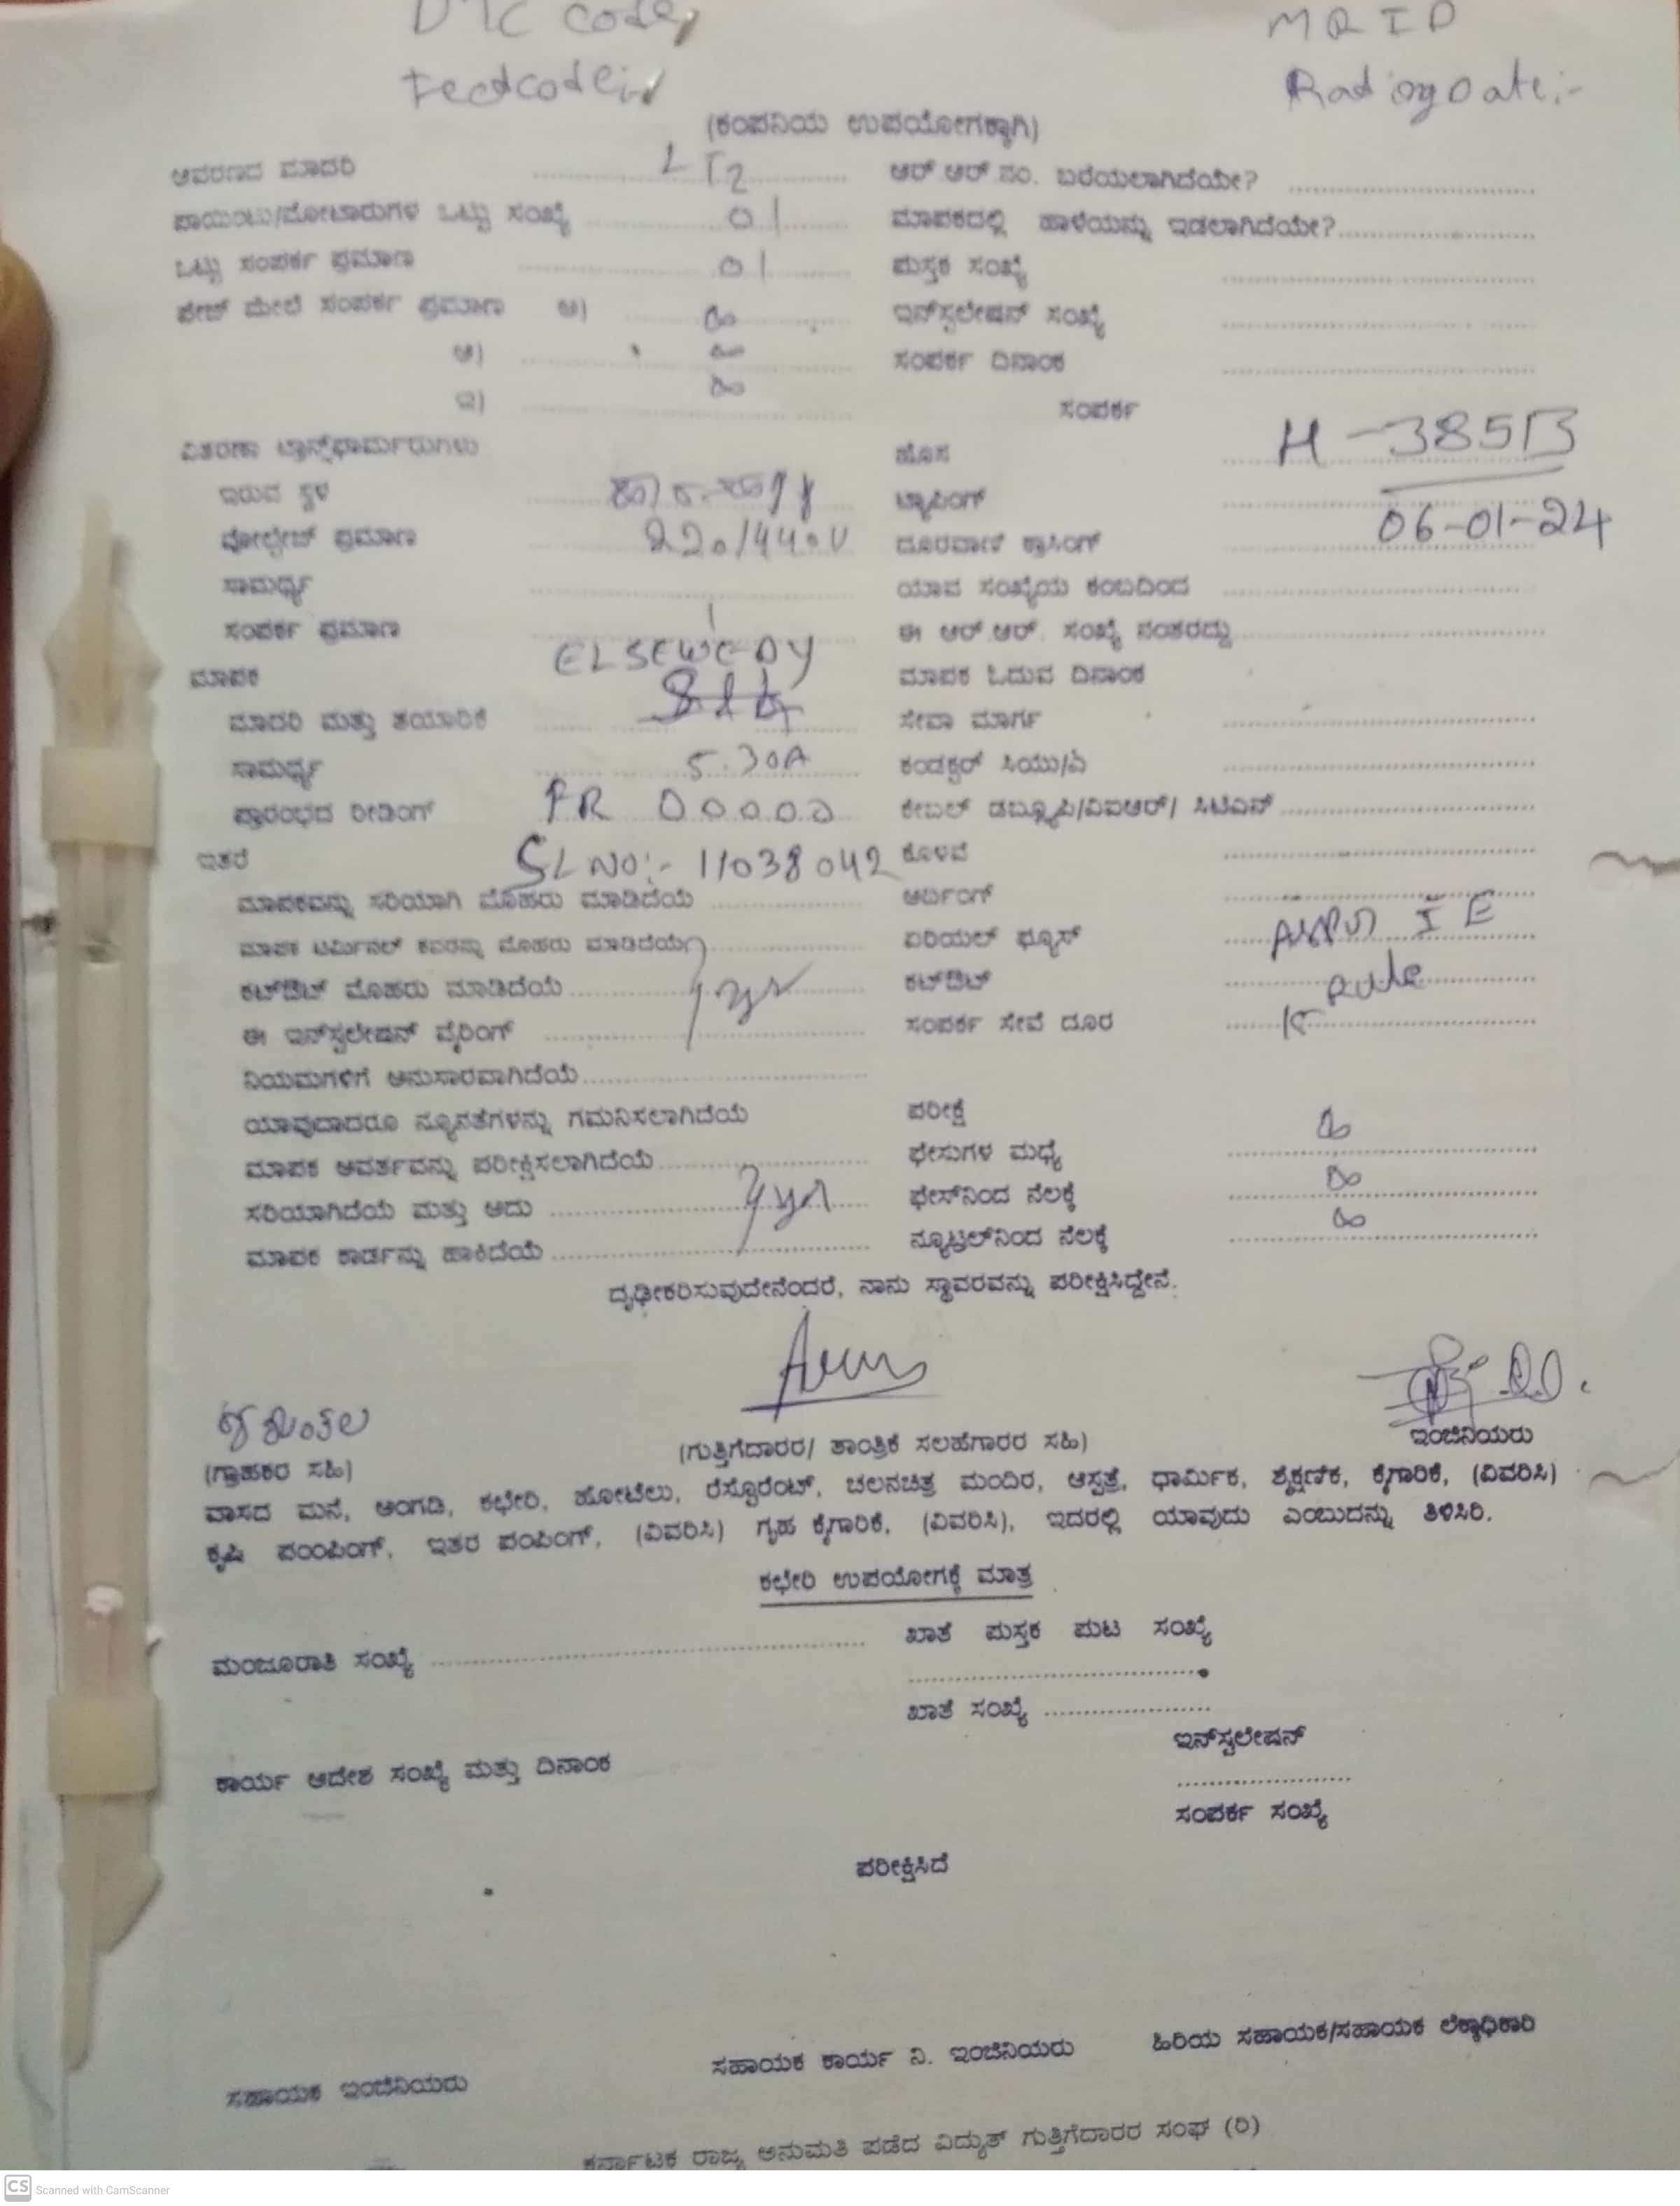 DTC code,
MRID
Feedcode:-
RadingDate:-
(ಕಂಪನಿಯ ಉಪಯೋಗಕ್ಕಾಗಿ)
ಆವರಣದ ಮಾದರಿ ........ LT2 ........ ಆರ್.ಆರ್.ನಂ. ಬರೆಯಲಾಗಿದೆಯೇ? ........
ಪಾಯಿಂಟು/ಮೋಟಾರುಗಳ ಒಟ್ಟು ಸಂಖ್ಯೆ ........ 01 ........ ಮಾಪಕದಲ್ಲಿ ಹಾಳೆಯನ್ನು ಇಡಲಾಗಿದೆಯೇ?........
ಒಟ್ಟು ಸಂಪರ್ಕ ಪ್ರಮಾಣ ........ 01 ........ ಪುಸ್ತಕ ಸಂಖ್ಯೆ ........
ಪೇಜ್ ಮೇಲೆ ಸಂಪರ್ಕ ಪ್ರಮಾಣ ಅ) ........ ಇನ್‌ಸ್ಟಲೇಷನ್ ಸಂಖ್ಯೆ ........
ಆ) ........ ಸಂಪರ್ಕ ದಿನಾಂಕ ........
ಇ) ........ ಸಂಪರ್ಕ
ವಿತರಣಾ ಟ್ರಾನ್ಸ್‌ಫಾರ್ಮರುಗಳು ಹೊಸ ........ H-385B
ಇರುವ ಸ್ಥಳ ........ ಟ್ಯಾಪಿಂಗ್ ........
ವೋಲ್ಟೇಜ್ ಪ್ರಮಾಣ 220/440V ದೂರವಾಣಿ ಕ್ರಾಸಿಂಗ್ ........ 06-01-24
ಸಾಮರ್ಥ್ಯ ........ ಯಾವ ಸಂಖ್ಯೆಯ ಕಂಬದಿಂದ ........
ಸಂಪರ್ಕ ಪ್ರಮಾಣ ........ ಈ ಆರ್.ಆರ್. ಸಂಖ್ಯೆ ನಂತರದ್ದು ........
ಮಾಪಕ ELSEWEDY ಮಾಪಕ ಓದುವ ದಿನಾಂಕ
ಮಾದರಿ ಮತ್ತು ತಯಾರಿಕೆ ........ ಸೇವಾ ಮಾರ್ಗ ........
ಸಾಮರ್ಥ್ಯ ........ 5-30A ........ ಕಂಡಕ್ಟರ್ ಸಿಯು/ಎ ........
ಪ್ರಾರಂಭದ ರೀಡಿಂಗ್ FR 00000 ಕೇಬಲ್ ಡಬ್ಲ್ಯೂಪಿ/ವಿಐಆರ್/ ಸಿಟಿಎಸ್ ........
ಇತರೆ SL NO:- 11038042 ಕೊಳವೆ ........
ಮಾಪಕವನ್ನು ಸರಿಯಾಗಿ ಮೊಹರು ಮಾಡಿದೆಯೆ ........ ಅರ್ಥಿಂಗ್ ........
ಮಾಪಕ ಟರ್ಮಿನಲ್ ಕವರನ್ನು ಮೊಹರು ಮಾಡಿದೆಯೆ ಏರಿಯಲ್ ಫ್ಯೂಸ್ ........ IE
ಕಟ್‌ಔಟ್ ಮೊಹರು ಮಾಡಿದೆಯೆ ........ ಕಟ್‌ಔಟ್ ........ Rule ........
ಈ ಇನ್‌ಸ್ಟಲೇಷನ್ ವೈರಿಂಗ್ ........ ಸಂಪರ್ಕ ಸೇವೆ ದೂರ ........
ನಿಯಮಗಳಿಗೆ ಅನುಸಾರವಾಗಿದೆಯೆ ........
ಯಾವುದಾದರೂ ನ್ಯೂನತೆಗಳನ್ನು ಗಮನಿಸಲಾಗಿದೆಯೆ ಪರೀಕ್ಷೆ
ಮಾಪಕ ಆವರ್ತವನ್ನು ಪರೀಕ್ಷಿಸಲಾಗಿದೆಯೆ ........ ಫೇಸುಗಳ ಮಧ್ಯೆ ........
ಸರಿಯಾಗಿದೆಯೆ ಮತ್ತು ಅದು ........ ಫೇಸ್‌ನಿಂದ ನೆಲಕ್ಕೆ ........
ಮಾಪಕ ಕಾರ್ಡನ್ನು ಹಾಕಿದೆಯೆ ........ ನ್ಯೂಟ್ರಲ್‌ನಿಂದ ನೆಲಕ್ಕೆ ........
ದೃಢೀಕರಿಸುವುದೇನೆಂದರೆ, ನಾನು ಸ್ಥಾವರವನ್ನು ಪರೀಕ್ಷಿಸಿದ್ದೇನೆ.
(ಗ್ರಾಹಕರ ಸಹಿ) (ಗುತ್ತಿಗೆದಾರರ/ ತಾಂತ್ರಿಕ ಸಲಹೆಗಾರರ ಸಹಿ) ಇಂಜಿನಿಯರು
ವಾಸದ ಮನೆ, ಅಂಗಡಿ, ಕಛೇರಿ, ಹೋಟೆಲು, ರೆಸ್ಟೊರೆಂಟ್, ಚಲನಚಿತ್ರ ಮಂದಿರ, ಆಸ್ಪತ್ರೆ, ಧಾರ್ಮಿಕ, ಶೈಕ್ಷಣಿಕ, ಕೈಗಾರಿಕೆ, (ವಿವರಿಸಿ)
ಕೃಷಿ ಪಂಪಿಂಗ್, ಇತರ ಪಂಪಿಂಗ್, (ವಿವರಿಸಿ) ಗೃಹ ಕೈಗಾರಿಕೆ, (ವಿವರಿಸಿ), ಇದರಲ್ಲಿ ಯಾವುದು ಎಂಬುದನ್ನು ತಿಳಿಸಿರಿ.
ಕಛೇರಿ ಉಪಯೋಗಕ್ಕೆ ಮಾತ್ರ
ಮಂಜೂರಾತಿ ಸಂಖ್ಯೆ ........ ಖಾತೆ ಪುಸ್ತಕ ಪುಟ ಸಂಖ್ಯೆ
........
ಖಾತೆ ಸಂಖ್ಯೆ ........
ಇನ್‌ಸ್ಟಲೇಷನ್
ಕಾರ್ಯ ಆದೇಶ ಸಂಖ್ಯೆ ಮತ್ತು ದಿನಾಂಕ ........
ಸಂಪರ್ಕ ಸಂಖ್ಯೆ
ಪರೀಕ್ಷಿಸಿದೆ
ಸಹಾಯಕ ಇಂಜಿನಿಯರು ಸಹಾಯಕ ಕಾರ್ಯ ನಿ. ಇಂಜಿನಿಯರು ಹಿರಿಯ ಸಹಾಯಕ/ಸಹಾಯಕ ಲೆಕ್ಕಾಧಿಕಾರಿ
ಕರ್ನಾಟಕ ರಾಜ್ಯ ಅನುಮತಿ ಪಡೆದ ವಿದ್ಯುತ್ ಗುತ್ತಿಗೆದಾರರ ಸಂಘ (ರಿ)
CS Scanned with CamScanner